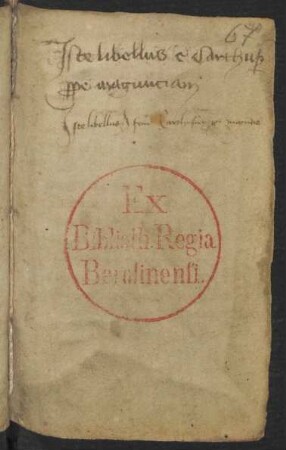 67
Iste libellus e Carthus
ppe maguntiam
Iste libellus
Ex
Biblioth. Regia
Berolinensi.